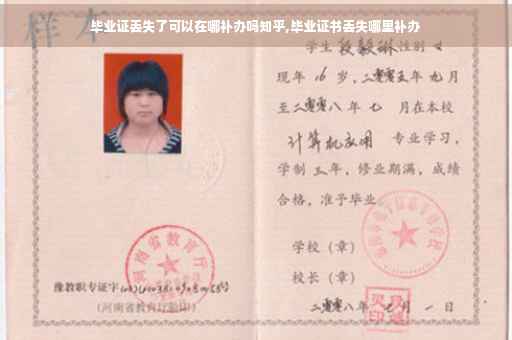 毕业证丢失了可以在哪补办吗知乎,毕业证书丢失哪里补办
样本
学生 段毅琳 性别 女
现年 16 岁,二零零五年 九月
至二零零八年 七 月在本校
计算机应用 专业学习,
学制 三 年,修业期满,成绩
合格,准予毕业
学校(章)
校长(章)
二零零八年 七月 一 日
河南省教育厅
豫教职专证字
(河南省教育厅监制)